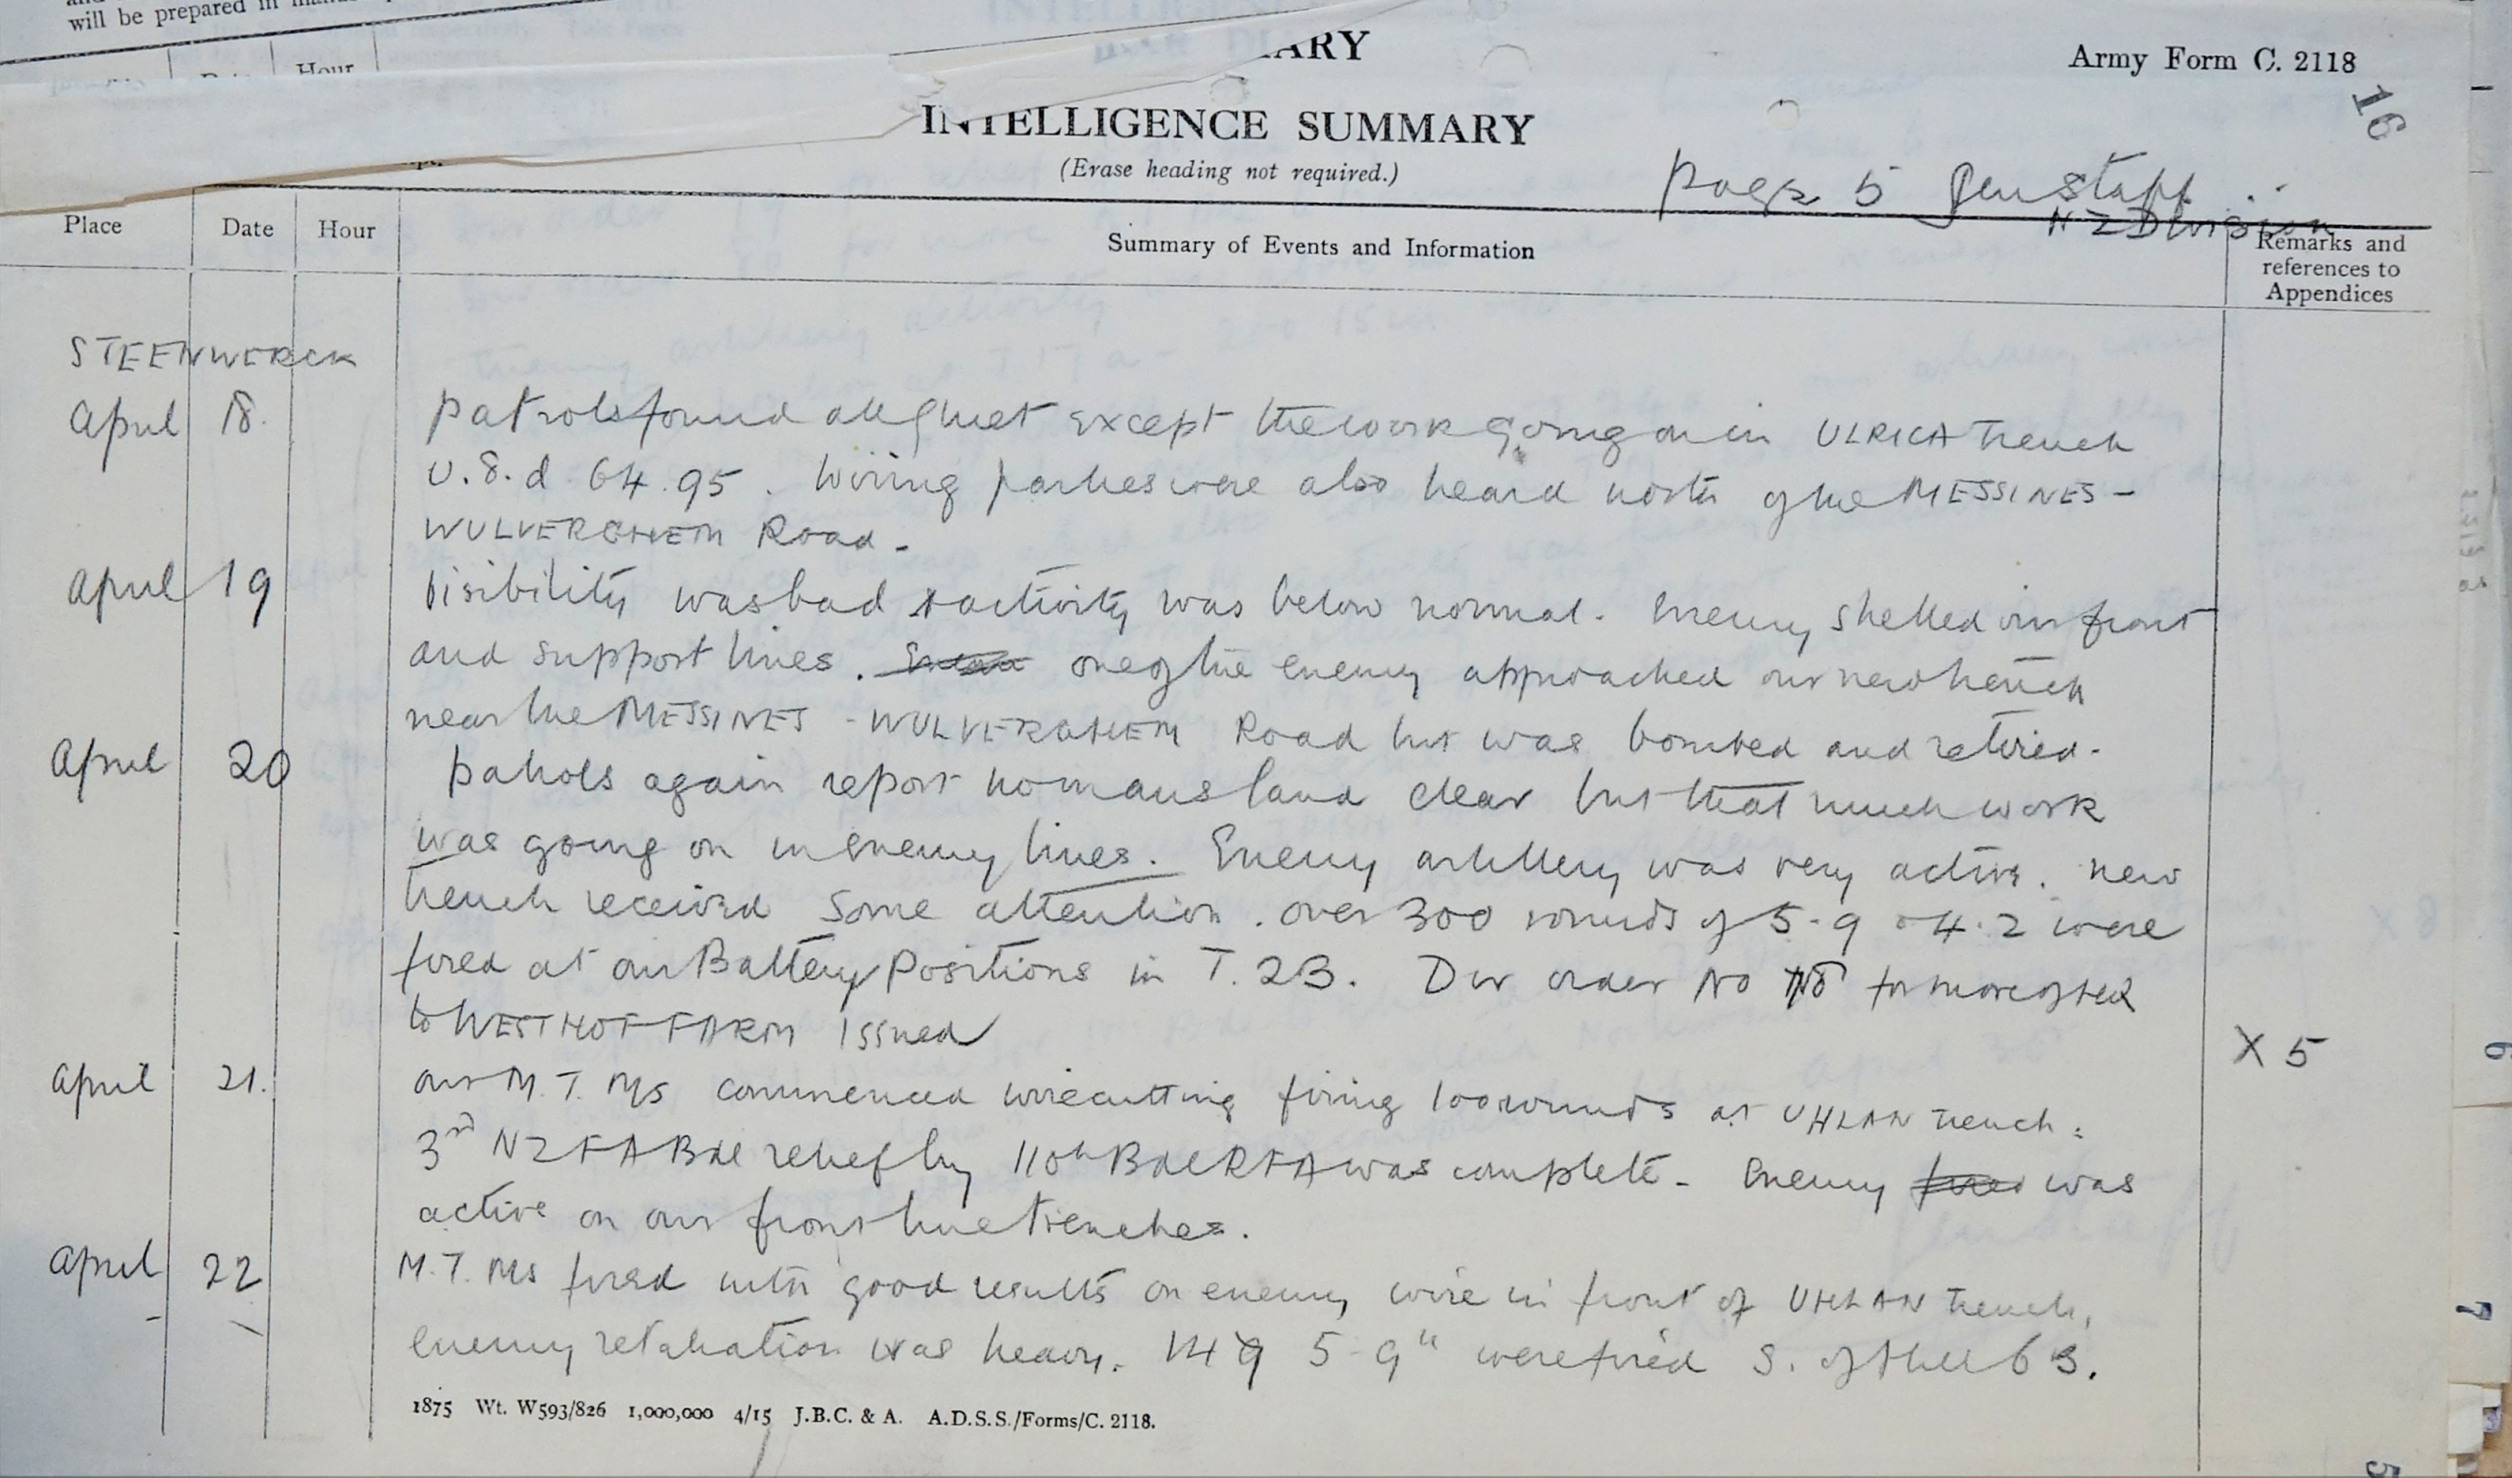 will be prepared in
Hour
ARY
Army Form C. 2118
16
INTELLIGENCE SUMMARY
(Erase heading not required.)
page 5 Gen Staff
NZ Division
Place Date Hour Summary of Events and Information Remarks and references to Appendices
STEENWERCK
April 18. patrols found all quiet except the work going on in ULRICA Trench
U.8.d 64.95. Wiring parties were also heard north of the MESSINES-
WULVERGHEM Road.
April 19 Visibility was bad & activity was below normal. Enemy shelled our front
and support lines. one of the enemy approached our new trench
near the MESSINES - WULVERGHEM Road but was bombed and retired.
April 20 patrols again report no mans land clear but that much work
was going on in enemy lines. Enemy artillery was very active. New
trench received some attention. over 300 rounds of 5.9 & 4.2 were
fired at our Battery Positions in T.2B. Div order No for move of HdQ
to WESTHOF FARM issued
X 5
April 21. our M.T.Ms commenced wirecutting firing 100 rounds at UHLAN trench.
3rd NZFA Bde relief by 110th Bde RFA was complete. Enemy fired was
active on our front line trenches.
April 22 M.T.Ms fired with good results on enemy wire in front of UHLAN trench,
enemy retaliation was heavy. 5-9" were fired S. of Hill 63.
1875 Wt. W593/826 1,000,000 4/15 J.B.C. & A. A.D.S.S./Forms/C. 2118.